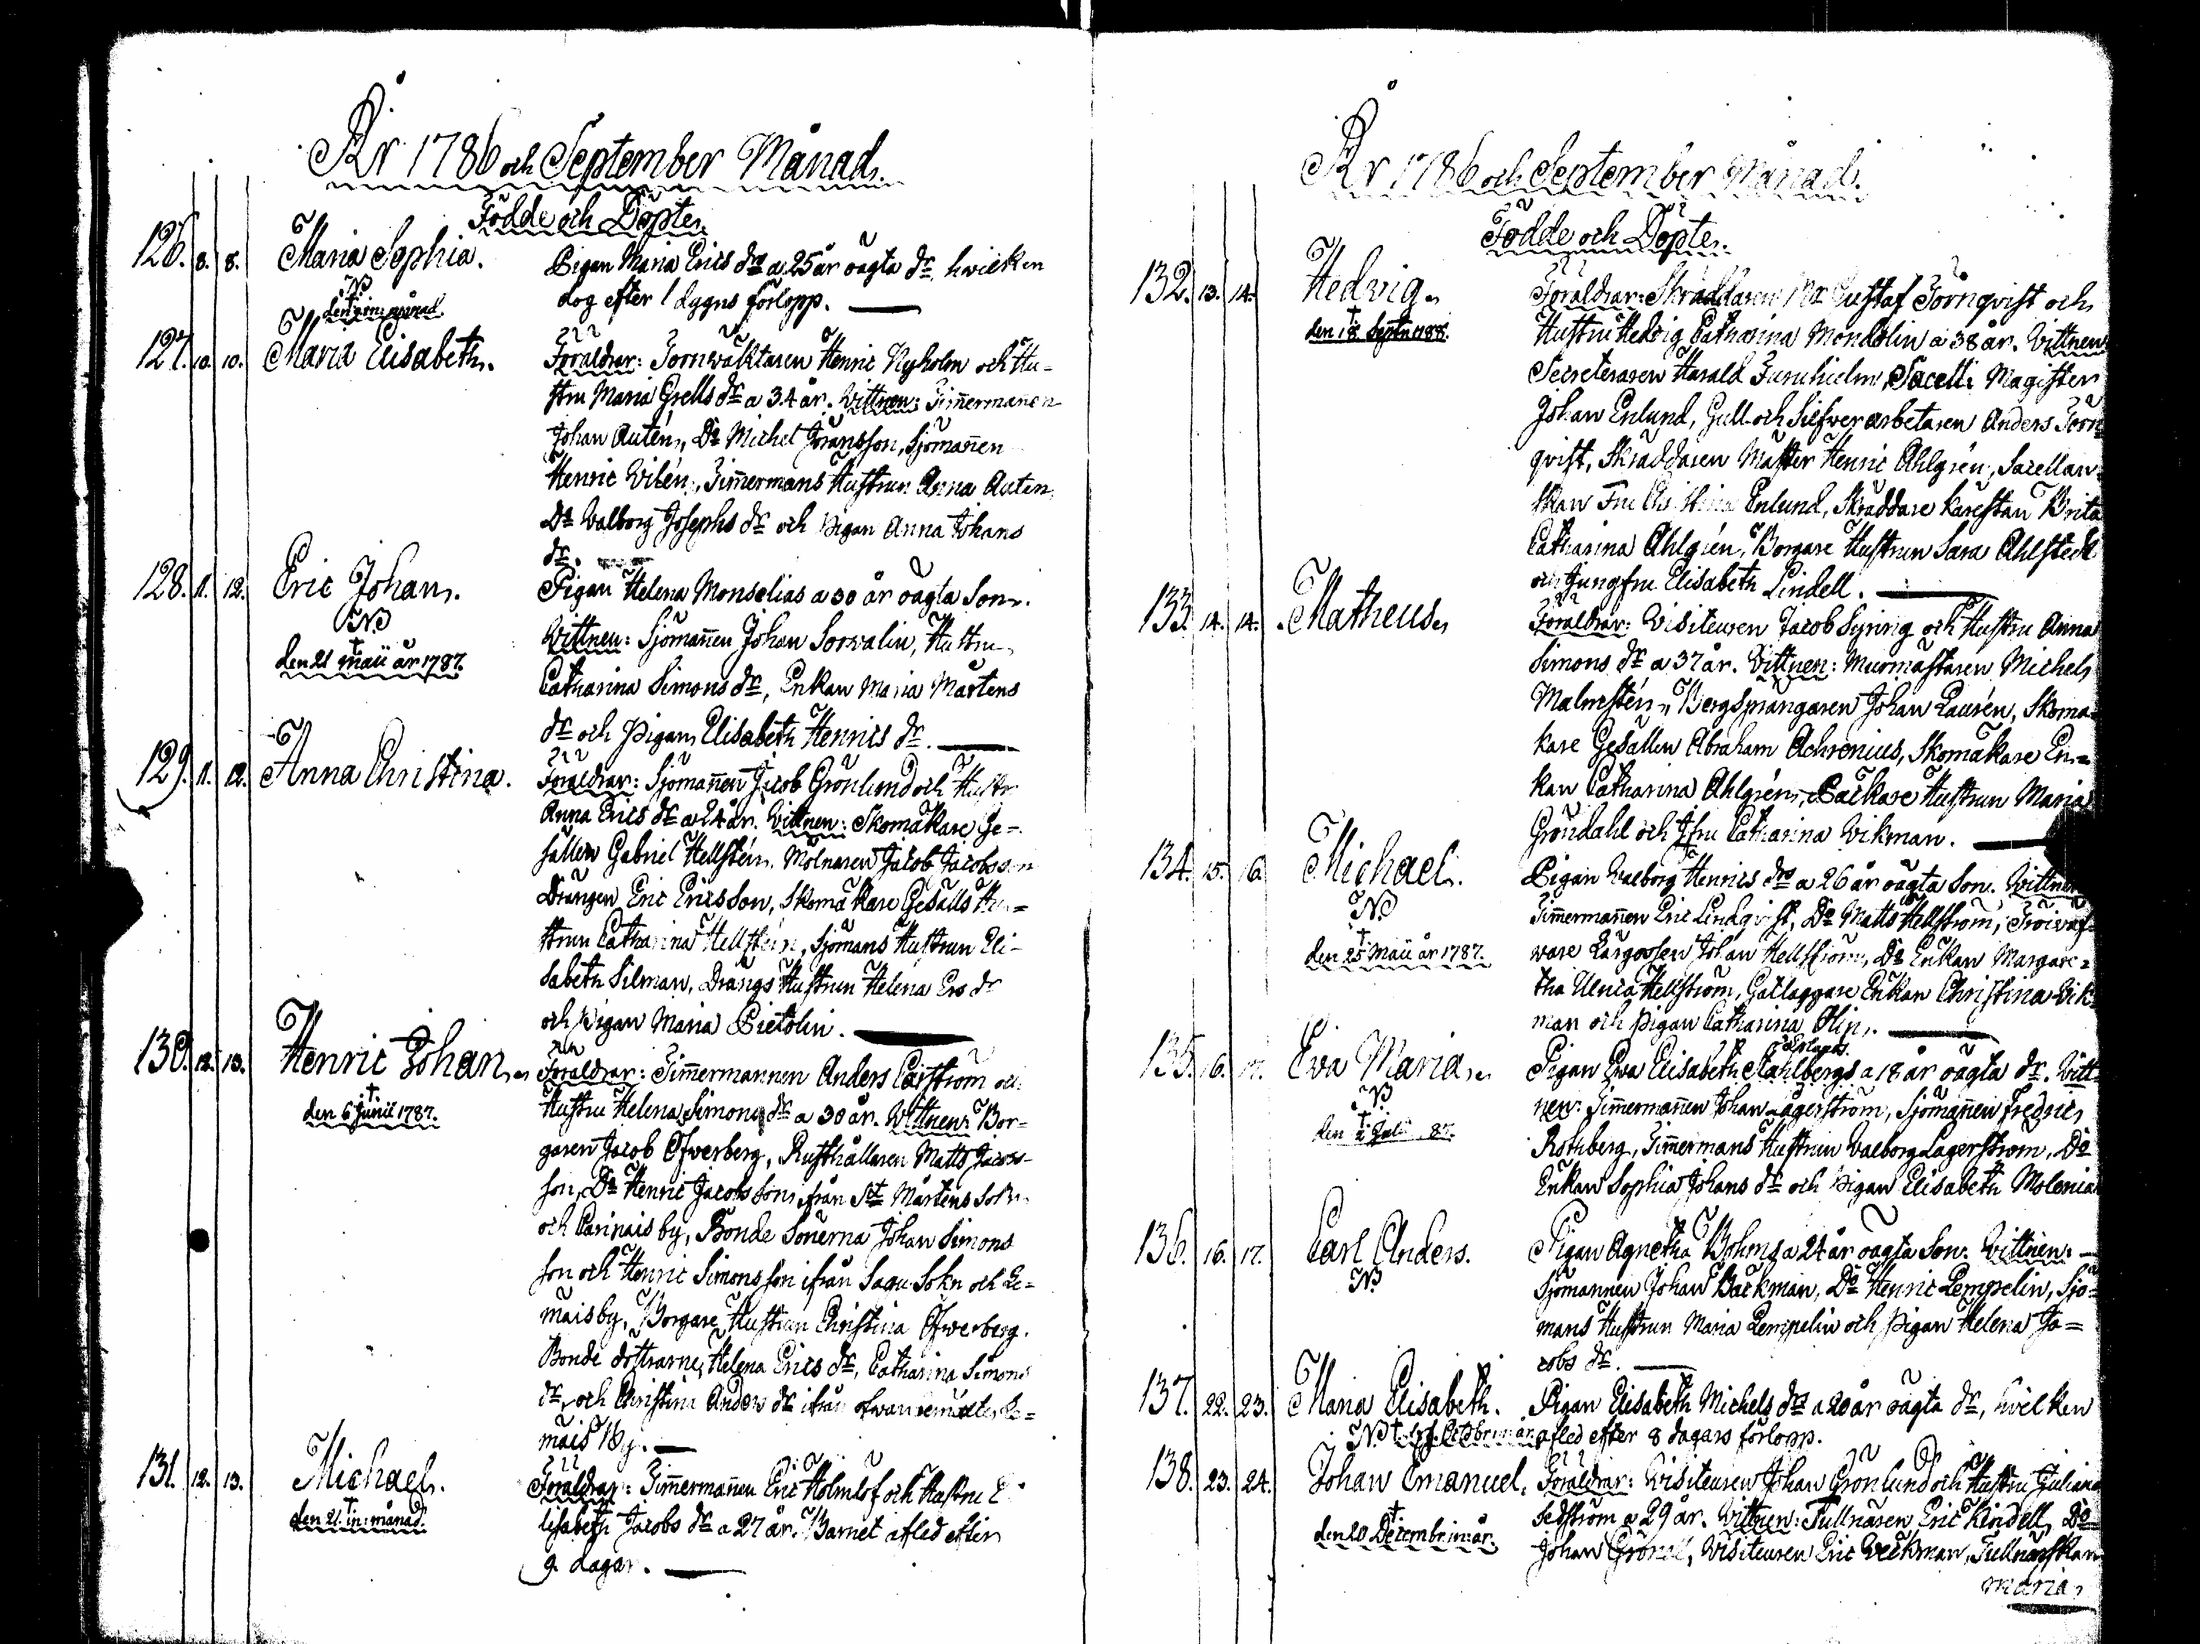 År 1786 och September Månad.
Födde och Döpte.
126. 8. 8. Maria Sophia. Pigan Maria Erics dr a 25 år oägta dr hvilken
N
dog efter 1 dygns förlopp.
127. 10. 10. Maria Elisabeth. Föräldrar: Tornwäktaren Henric Nyholm och Hu-
stru Maria Grells dr a 34 år. Wittnen: Timmermannen
Johan Autén, Do Michel Jöransson, Sjömannen
Henric Vilén, Timmermans Hustrun Anna Autén
Do Valborg Josephs dr och Pigan Anna Johans
dr.
128. 11. 12. Eric Johan. Pigan Helena Monselias a 30 år oägta Son.
N
† den 21 Maii år 1787.
Wittnen: Sjömannen Johan Sorvalin, Hustru
Catharina Simons dr, Enkan Maria Mårtens
dr och Pigan Elisabeth Henrics dr.
129. 11. 12. Anna Christina. Föräldrar: Sjömannen Jacob Grönlund och Hustru
Anna Erics dr a 24 år. Wittnen: Skomakare Ge-
sällen Gabriel Hellstén. Mölnaren Jacob Jacobsson
Drängen Eric Ericsson, Skomakare Gesälls Hu-
strun Catharina Hellstén, Sjömans Hustrun Eli-
sabeth Silman, Drängs Hustrun Helena Ers dr
och Pigan Maria Pietolin.
130. 12. 13. Henric Johan. Föräldrar: Timmermannen Anders Carström och
† den 6 Junii 1787.
Hustru Helena Simons dr a 30 år. Wittnen: Bor-
garen Jacob Öfwerberg, Rusthållaren Matts Jacobs-
son, Do Henric Jacobsson ifrån St Mårtens Sokn
och Carinais by, Bonde Sönerna Johan Simons
son och Henric Simonsson ifrån Sagu Sokn och Le-
mais by, Borgare Hustrun Christina Öfwerberg.
Bonde döttrarne Helena Erics dr, Catharina Simons
dr, och Christina Anders dr ifrån ofwannemälte Le-
mais By.
131. 12. 13. Michael. Föräldrar: Timmermannen Eric Holmlöf och Hustru E
† den 21 in: månad.
lisabeth Jacobs dr a 27 år. Barnet afled efter
9. dagar.
År 1786 och September Månad.
Födde och Döpte.
132. 13. 14. Hedvig. Föräldrar: Skräddaren Mr Gustaf Törnqvist och
† den 18 Septr 1788.
Hustru Hedvig Catharina Mondolin a 38 år. Wittnen
Secreteraren Harald Furuhielm, Sacelli Magister
Johan Enlund, Gull och Silfver arbetaren Anders Törn
qvist, Skräddaren Mäster Henric Ahlgrén, Sacellan
skan Fru Enlund, Skräddare Kärestan Brita
Catharina Ahlgrén, Borgare Hustrun Sara Ahlstedt
och Jungfru Elisabeth Lindell.
133. 14. 14. Matheus. Föräldrar: Visiteuren Jacob Syring och Hustru Anna
Simons dr a 37 år. Wittnen: Murmästaren Michel
Malmstén, Bergsprängaren Johan Laurén, Skoma-
kare Gesällen Abraham Achrenius, Skomakare En-
kan Catharina Ahlgrén, Backare Hustrun Maria
Gröndahl och Jfru Catharina Wikman.
134. 15. 16. Michael. Pigan Walborg Henrics dr a 26 år oägta Son. Wittnen
N
† den 25 Maii år 1787.
Timmermannen Eric Lindqvist, Do Matts Hellström,
Johan Hellström, Do Enkan Margare-
tha Ulrica Hellström, Enkan Christina Wik
man och Pigan Catharina Olin.
135. 16. 17. Eva Maria. Pigan Eva Elisabeth Stahlbergs a 18 år oägta dr. Witt-
N
nen: Timmermannen Johan Lagerström, Sjömannen Fredric
Rotkberg, Timmermans Hustrun Valborg Lagerström, Do
Enkan Sophia Johans dr och Pigan Elisabeth Molenia
136. 16. 17. Carl Anders. Pigan Agnetha Bohms a 24 år oägta Son. Wittnen:
N
Sjömannen Johan Backman, Do Henric Lempelin, Sjö-
mans Hustrun Maria Lempelin och Pigan Helena Ja-
cobs dr.
137. 22. 23. Maria Elisabeth. Pigan Elisabeth Michels dr a 20 år oägta dr, hvilken
afled efter 8 dagars förlopp.
138. 23. 24. Johan Emanuel. Föräldrar: Visiteuren Johan Grönlund och Hustru Juliana
† den 20 Decembr in: år.
Sedström a 29 år. Wittnen: Tullnären Eric Lindell, Do
Johan Visiteuren Eric Weckman, Tullnärskan
Maria